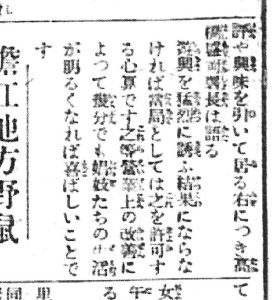 評や興味を引いて居る右につき
署長は語る
遊興を猛烈に誘ふ結果にならな
ければ當局としては之を許可す
る心算です之等營業上の改善に
よつて幾分でも娼妓たちの生活
が明るくなれば喜ばしいことで
す
江地方野鼠
て
女
午
る
里
同